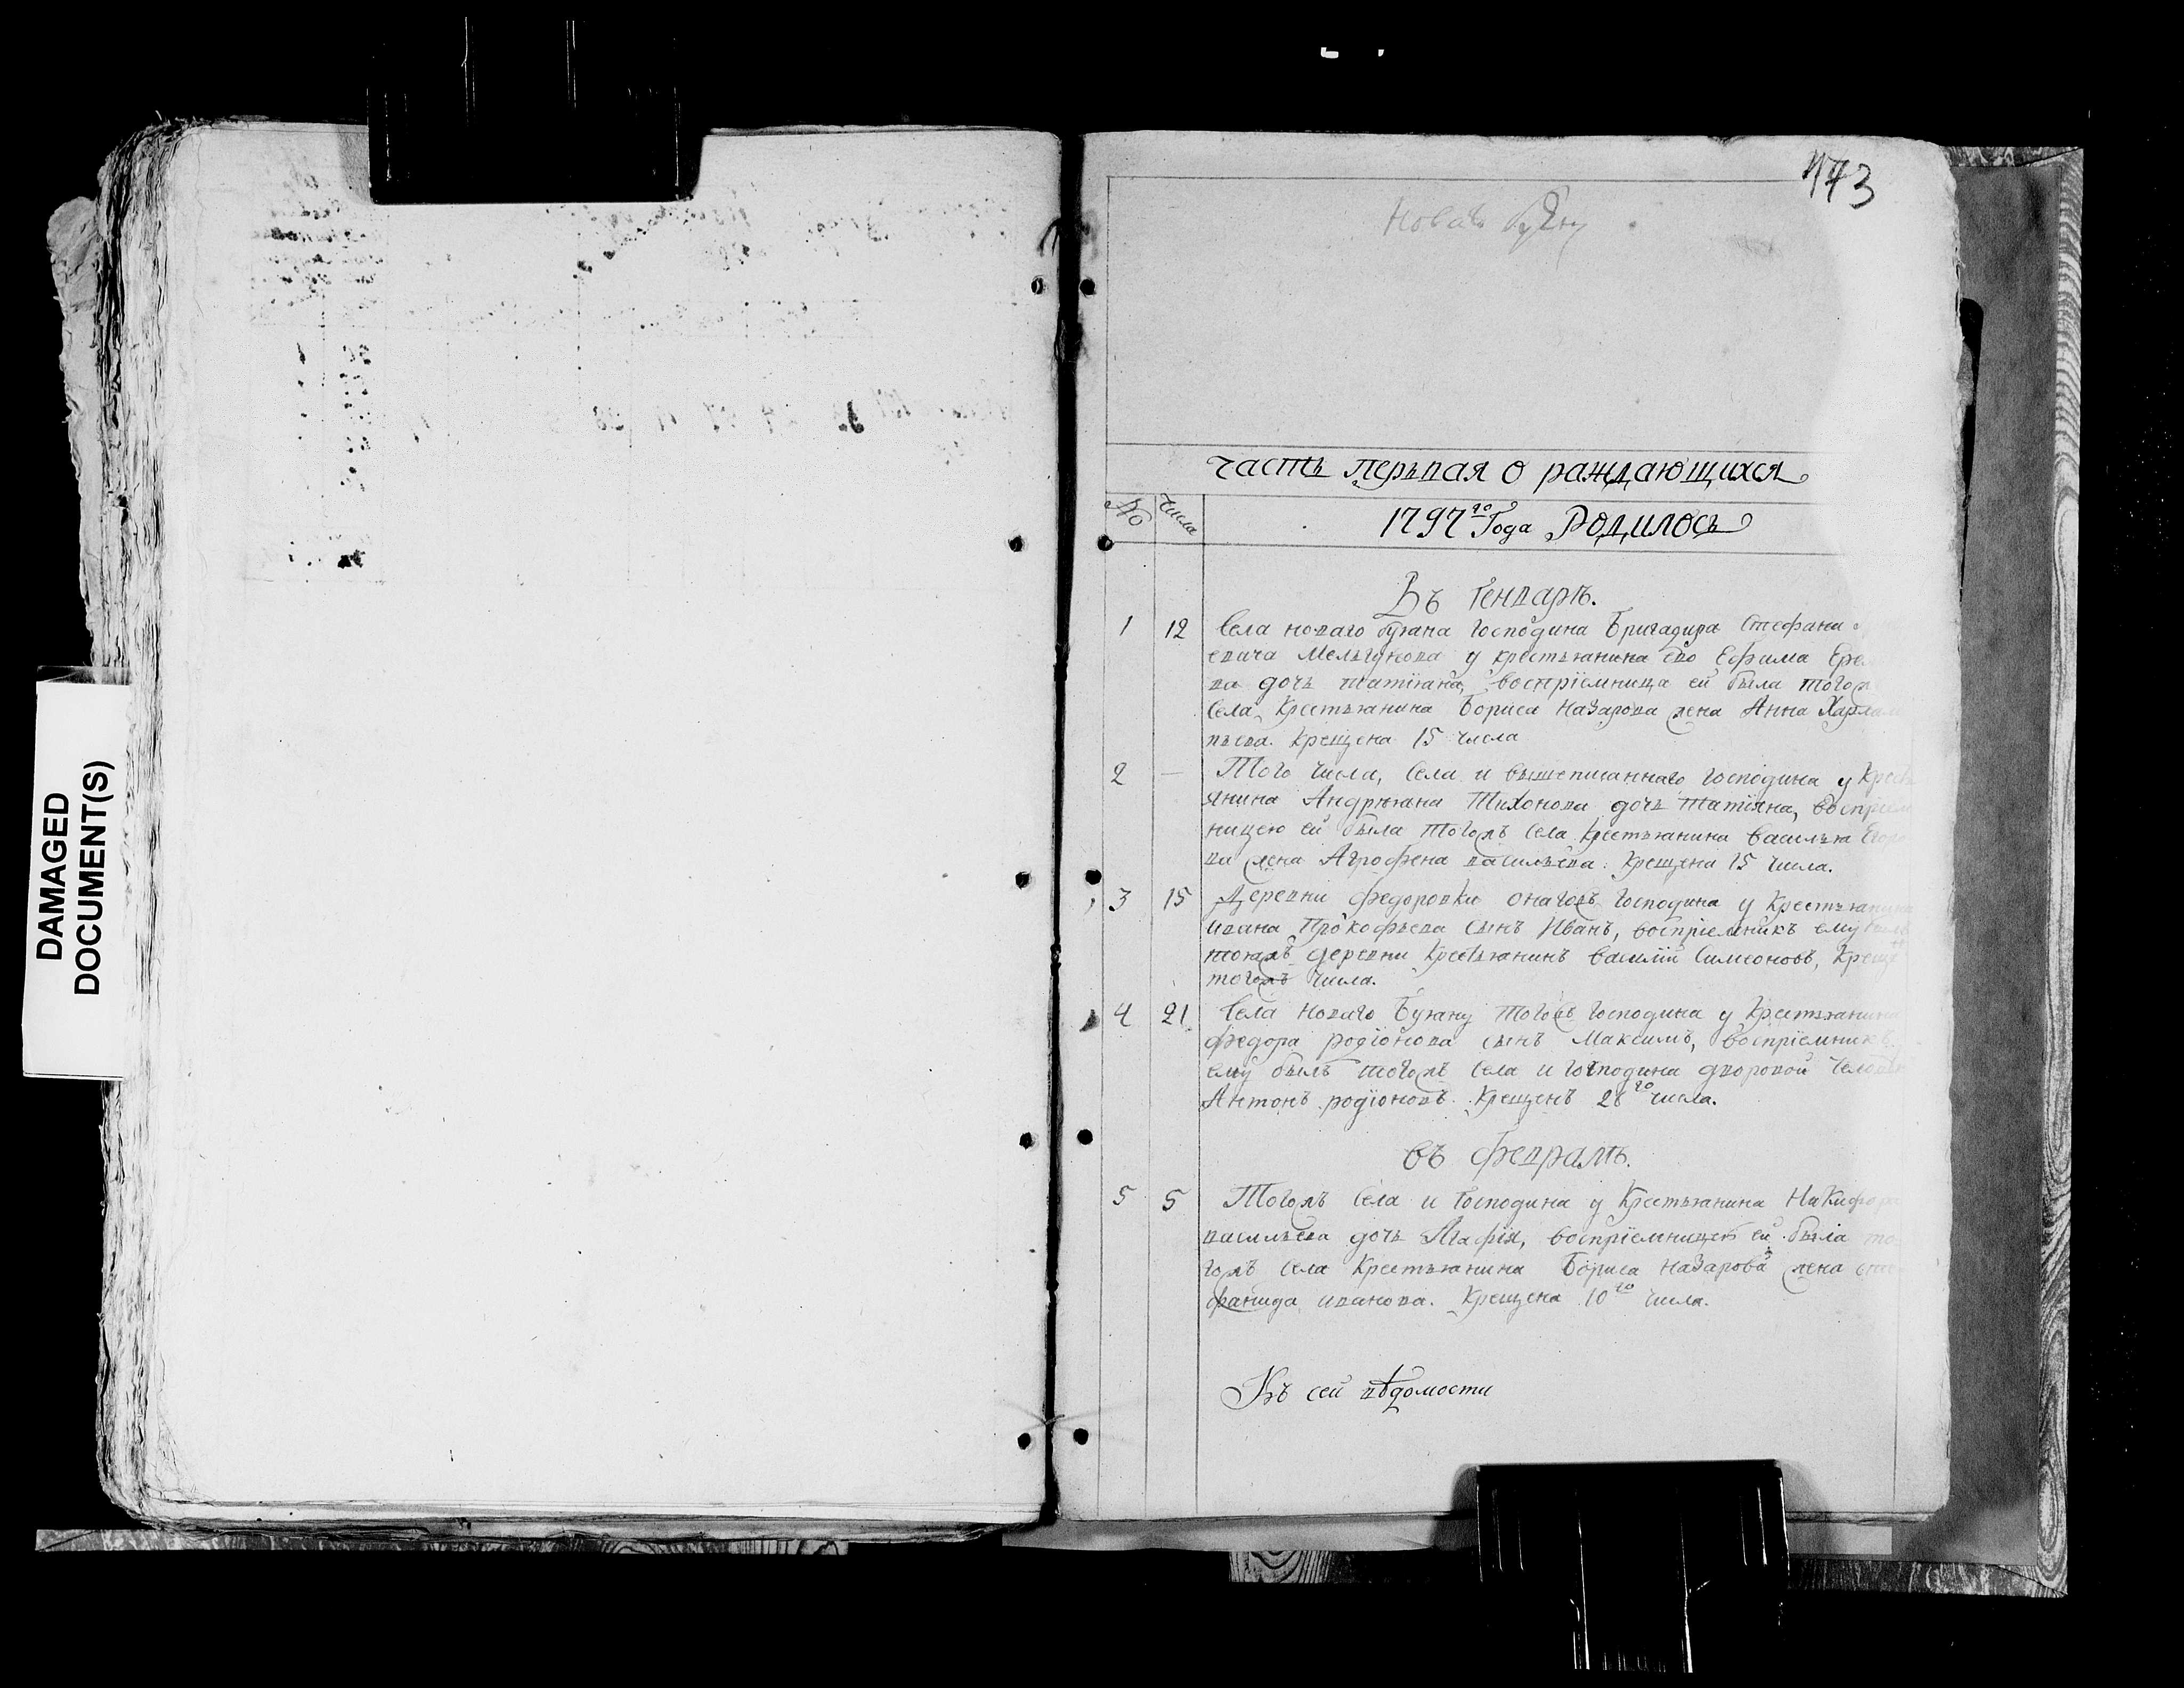 DAMAGED
DOCUMENT(S)
Новая
часть перьвая о раждающихся
№ Числа
1797го Года Родилось
Въ Генварѣ.
1 12 Села новаго бугана Господина Бригадира
евича Мельгунова у крестьянина ево Ефима
ва дочь татїана, воспрїемница ей была тогожъ
Села Крестьянина Бориса Назарова жена Анна
пьева. Крещена 15 числа
2 — Того числа, Села и вышеписаннаго господина у
янина Андреяна Тихонова дочь татїяна,
ницею ей была тогожъ села крестьянина василья
ва жена Агрофена васильева. Крещена 15 числа.
3 15 Деревни федоровки онагожъ господина у Крестьянина
ивана Прокофьева сынъ Иванъ, воспрїемникъ ему
тояжъ деревни Крестьянинъ василїй Симеоновъ,
тогожъ числа.
4 21 Села новаго Бугану тогожъ господина у Крестьянина
федора родїонова сынъ Максимъ, воспрїемникъ
ему былъ тогожъ Села и господина дворовой
Антонъ родїоновъ. Крещенъ числа.
въ февралѣ.
5 5 Тогожъ Села и Господина у Крестьянина Никифора
васильева дочь Агафїя, воспрїемницею ей была то
гожъ Села Крестьянина Бориса Назарова жена
фанида иванова. Крещена 10го числа.
Къ сей вѣдомости